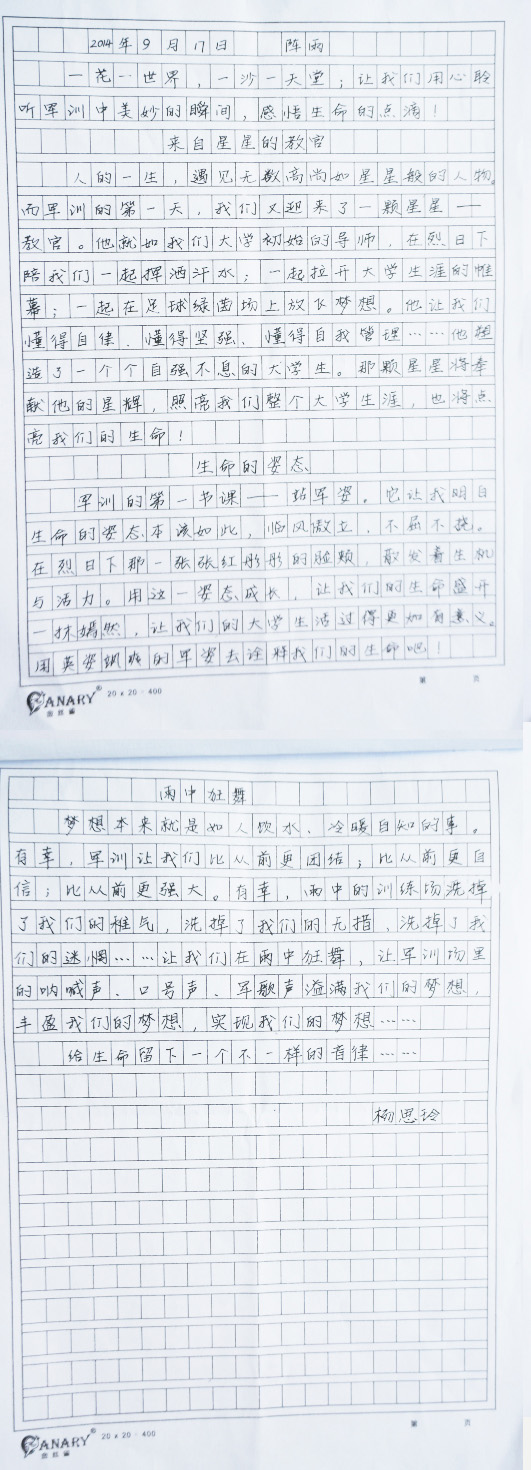 2014年9月17日 阵雨
一花一世界，一沙一天堂；让我们用心聆
听军训中美妙的瞬间，感悟生命的点滴！
来自星星的教官
人的一生，遇见无数高尚如星星般的人物。
而军训的第一天，我们又迎来了一颗星星——
教官。他就如我们大学初始的导师，在烈日下
陪我们一起挥洒汗水；一起拉开大学生涯的帷
幕；一起在足球绿茵场上放飞梦想。他让我们
懂得自律、懂得坚强、懂得自我管理……他塑
造了一个个自强不息的大学生。那颗星星将奉
献他的星辉，照亮我们整个大学生涯，也将点
亮我们的生命！
生命的姿态
军训的第一节课——站军姿。它让我明白
生命的姿态本该如此，临风傲立，不屈不挠。
在烈日下那一张张红彤彤的脸颊，散发着生机
与活力。用这一姿态成长，让我们的生命盛开
一抹嫣然，让我们的大学生活过得更加有意义。
用英姿飒爽的军姿去诠释我们的生命吧！
CANARY® 20×20=400
第 页
雨中狂舞
梦想本来就是如人饮水、冷暖自知的事。
有幸，军训让我们比从前更团结；比从前更自
信；比从前更强大。有幸，雨中的训练场洗掉
了我们的稚气，洗掉了我们的无措，洗掉了我
们的迷惘……让我们在雨中狂舞，让军训场里
的呐喊声、口号声、军歌声溢满我们的梦想，
丰盈我们的梦想，实现我们的梦想……
给生命留下一个不一样的音律……
杨思玲
第 页
CANARY® 20×20=400